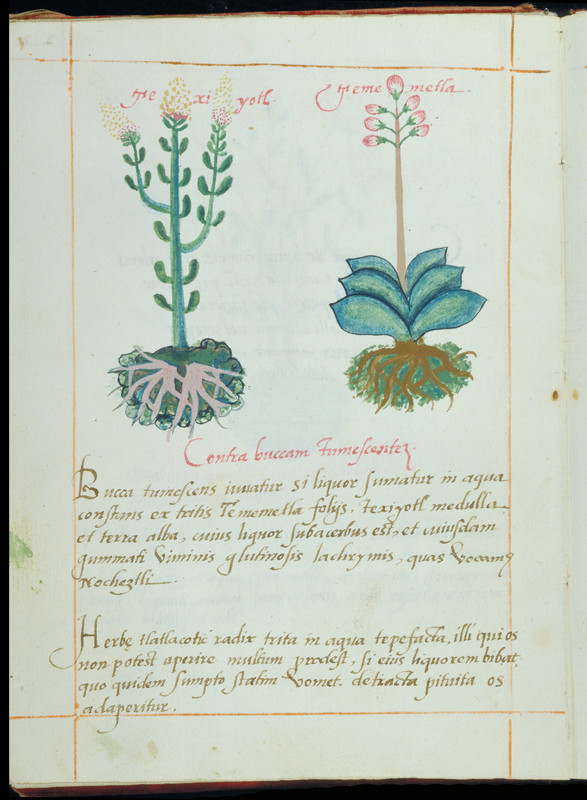 Te xi yotl.
Teme metla.
Contra buccam tumescentẽ.
Bucca tumescens iuuatur si liquor sumatur in aqua
constans ex tritis Tememetla folijs, texiyotl medulla
et terra alba, cuius liquor subacerbus est, et cuiusdam
gummati viminis glutinosis lachrymis, quas vocamꝰ
Nocheztli.
Herbę tlatlacotic radix trita in aqua tepefacta, illi qui os
non potest aperire multum prodest, si eius liquorem bibat.
quo quidem sumpto statim vomet. detracta pituita os
adaperitur.